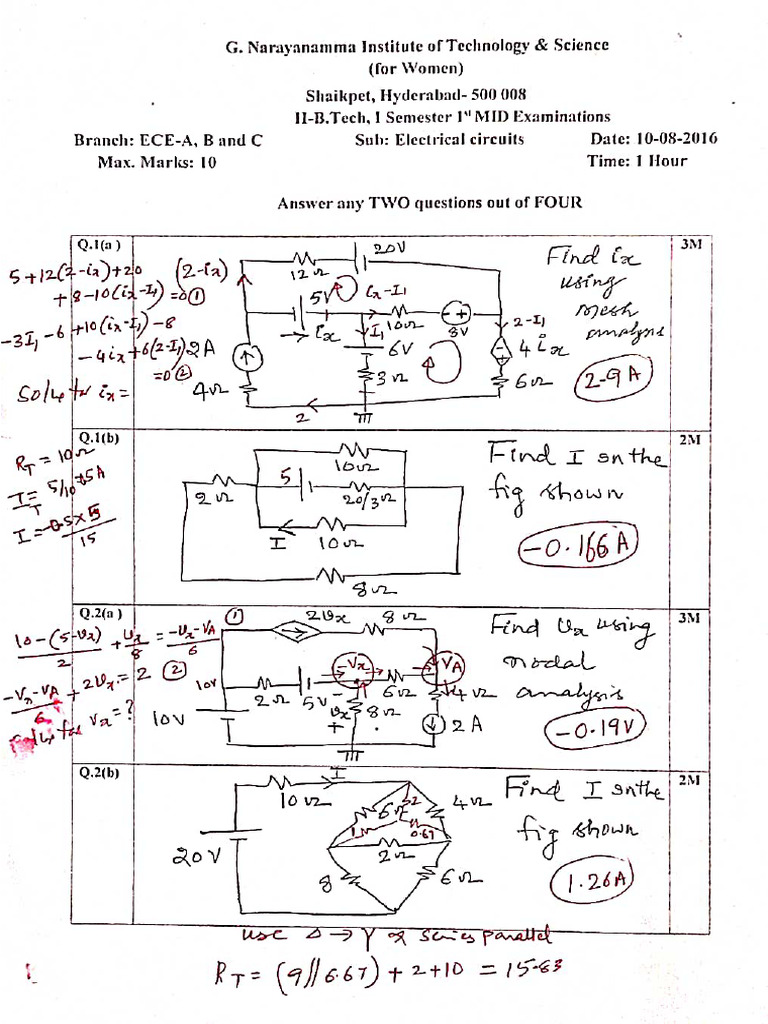 G. Narayanamma Institute of Technology & Science
(for Women)
Shaikpet, Hyderabad- 500 008
II-B.Tech, I Semester 1st MID Examinations
Branch: ECE-A, B and C Sub: Electrical circuits Date: 10-08-2016
Max. Marks: 10 Time: 1 Hour
Answer any TWO questions out of FOUR
Q.1(a)
3M
5+12(2-ix)+20
+8-10(ix-I1)=0 ①
-3I1-6+10(ix-I1)-8
-4ix+6(2-I1)
=0 ②
Solve for ix=
(2-ix)
12Ω
20V
5V
ix-I1
ix
I1
10Ω
8V
2-I1
2A
6V
4ix
4Ω
3Ω
6Ω
2
Find ix
using
mesh
analysis
2.9A
Q.1(b)
2M
RT = 10Ω
I = 5/10 = .5A
T
I = -0.5×5
15
10Ω
2Ω
5
20/3Ω
I
10Ω
8Ω
Find I in the
fig shown
-0.166A
Q.2(a)
3M
10-(5-Vx)/2 + Vx/8 = -Vx-VA/6
①
-Vx-VA/6 + 2Vx = 2 ②
solve for Vx=?
2Vx
8Ω
10V
-Vx
VA
2Ω
5V
6Ω
4Ω
10V
Vx
8Ω
2A
Find Vx using
nodal
analysis
-0.19V
Q.2(b)
2M
I
10Ω
6Ω
2
4Ω
1
0.67
2Ω
20V
8
6Ω
Find I in the
fig shown
1.26A
use Δ → Y & series parallel
RT = (9//6.67) + 2+10 = 15.83